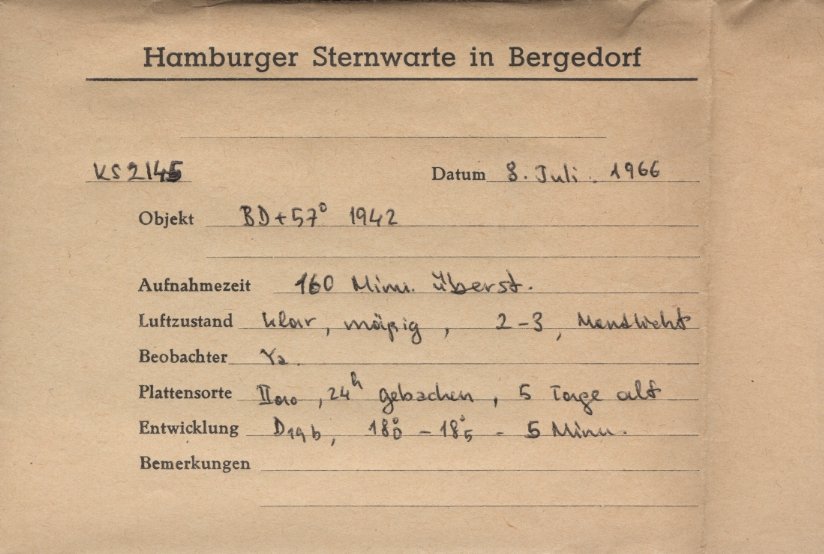 Hamburger Sternwarte in Bergedorf
KS 2145 Datum 8. Juli. 1966
Objekt BD+57° 1942
Aufnahmezeit 160 Minu. überst.
Luftzustand klar, mäßig, 2-3, Mondlicht
Beobachter
Plattensorte IIaO, 24h gebacken, 5 Tage alt
Entwicklung D19b, 18°0 - 18°5 - 5 Minu.
Bemerkungen